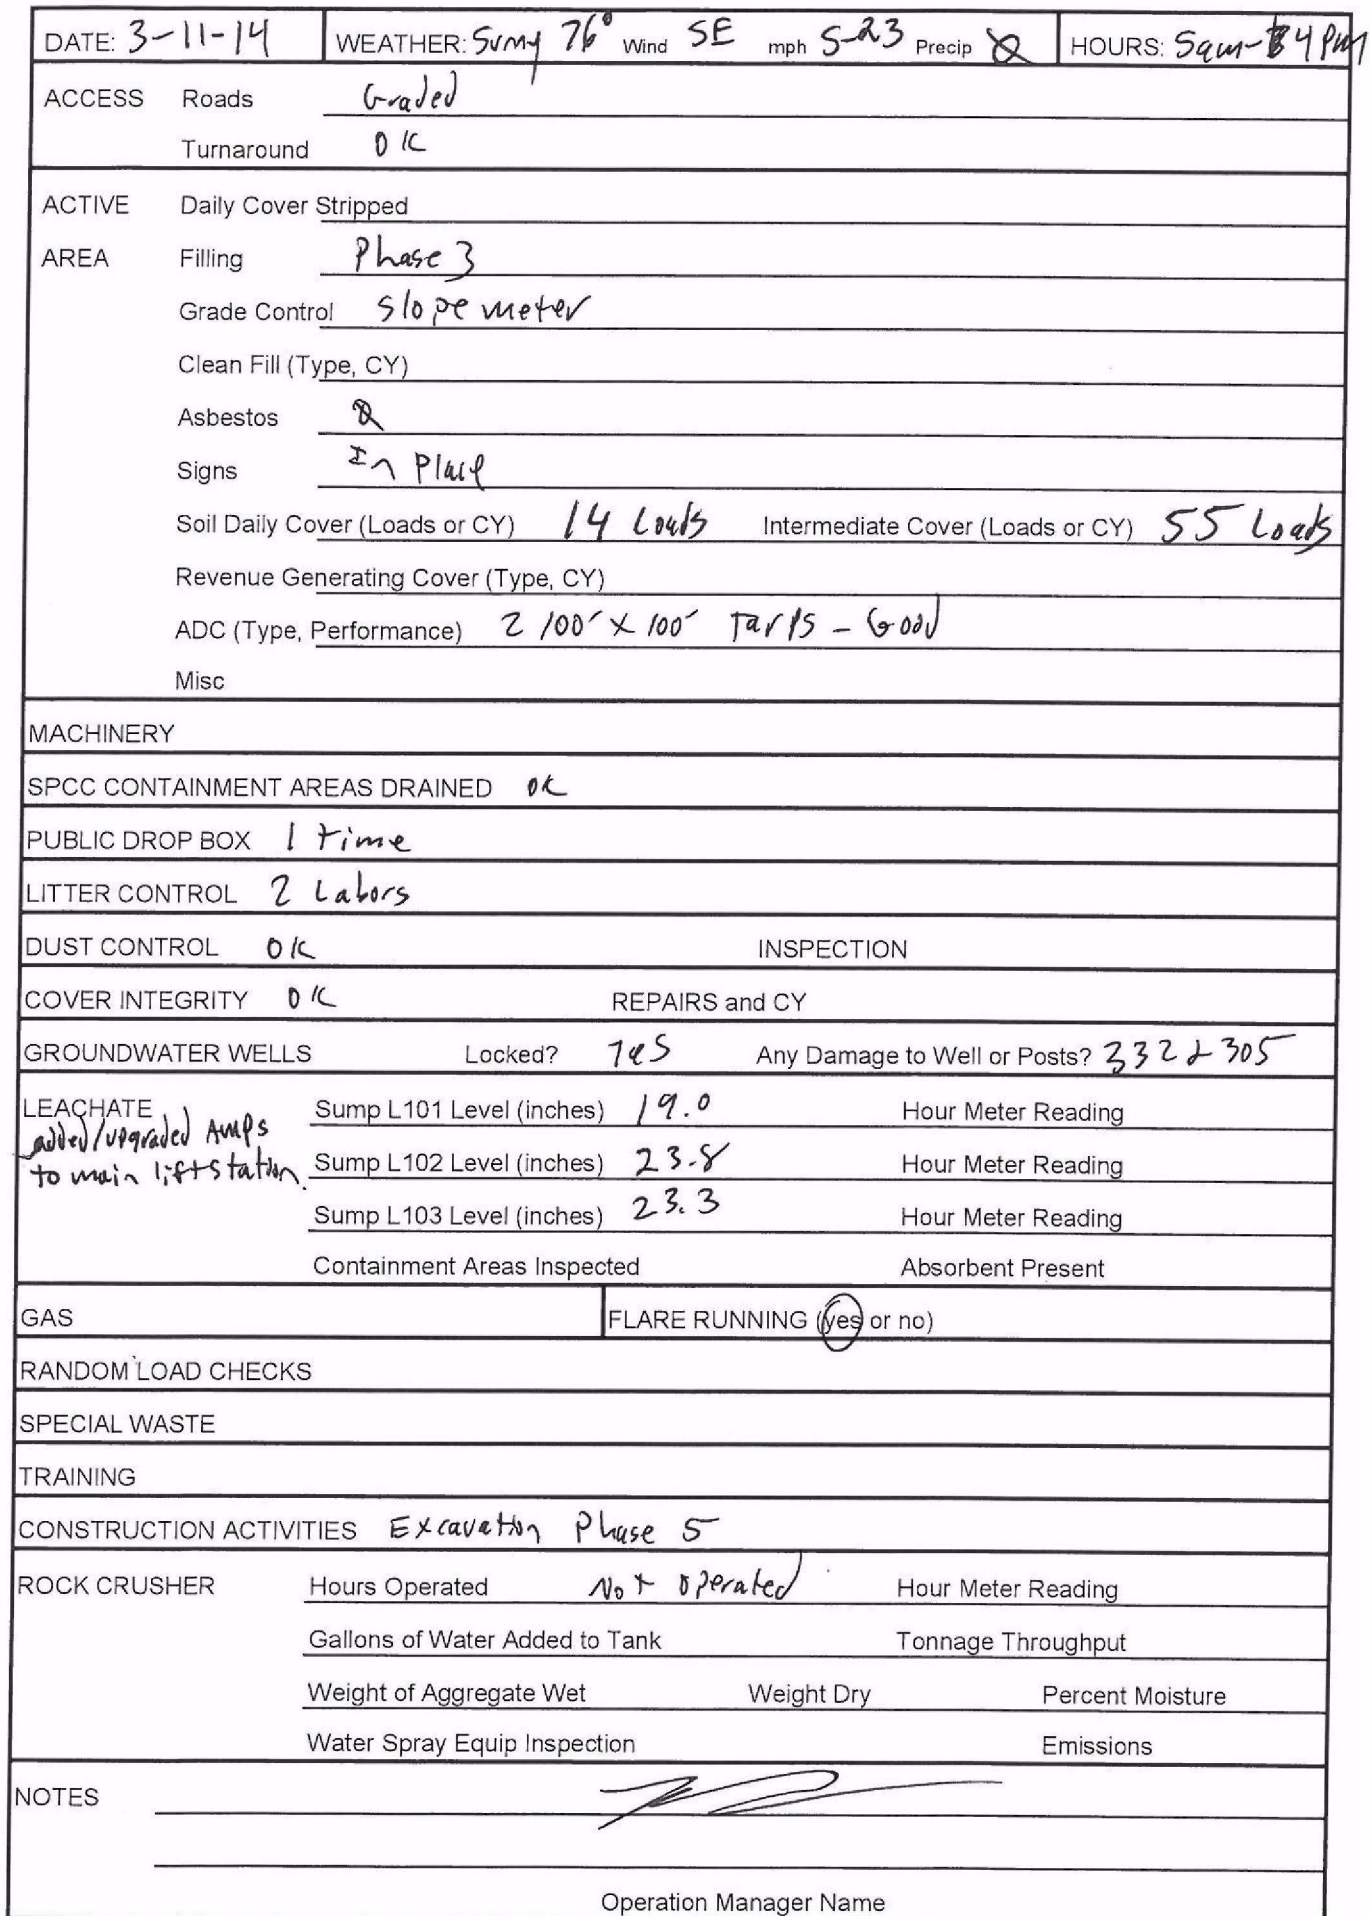 DATE: 3-11-14 WEATHER: Sunny 76° Wind SE mph 5-23 Precip Ø HOURS: 5am-4pm
ACCESS Roads Graded
Turnaround OK
ACTIVE Daily Cover Stripped
AREA Filling Phase 3
Grade Control Slope meter
Clean Fill (Type, CY)
Asbestos Ø
Signs In Place
Soil Daily Cover (Loads or CY) 14 Loads Intermediate Cover (Loads or CY) 55 Loads
Revenue Generating Cover (Type, CY)
ADC (Type, Performance) 2 100' x 100' Tarps - Good
Misc
MACHINERY
SPCC CONTAINMENT AREAS DRAINED OK
PUBLIC DROP BOX 1 time
LITTER CONTROL 2 Labors
DUST CONTROL OK INSPECTION
COVER INTEGRITY OK REPAIRS and CY
GROUNDWATER WELLS Locked? Yes Any Damage to Well or Posts? 332 & 305
LEACHATE Sump L101 Level (inches) 19.0 Hour Meter Reading
added/upgraded Amps
to main lift station. Sump L102 Level (inches) 23.8 Hour Meter Reading
Sump L103 Level (inches) 23.3 Hour Meter Reading
Containment Areas Inspected Absorbent Present
GAS FLARE RUNNING (yes or no)
RANDOM LOAD CHECKS
SPECIAL WASTE
TRAINING
CONSTRUCTION ACTIVITIES Excavation Phase 5
ROCK CRUSHER Hours Operated Not operated Hour Meter Reading
Gallons of Water Added to Tank Tonnage Throughput
Weight of Aggregate Wet Weight Dry Percent Moisture
Water Spray Equip Inspection Emissions
NOTES
Operation Manager Name